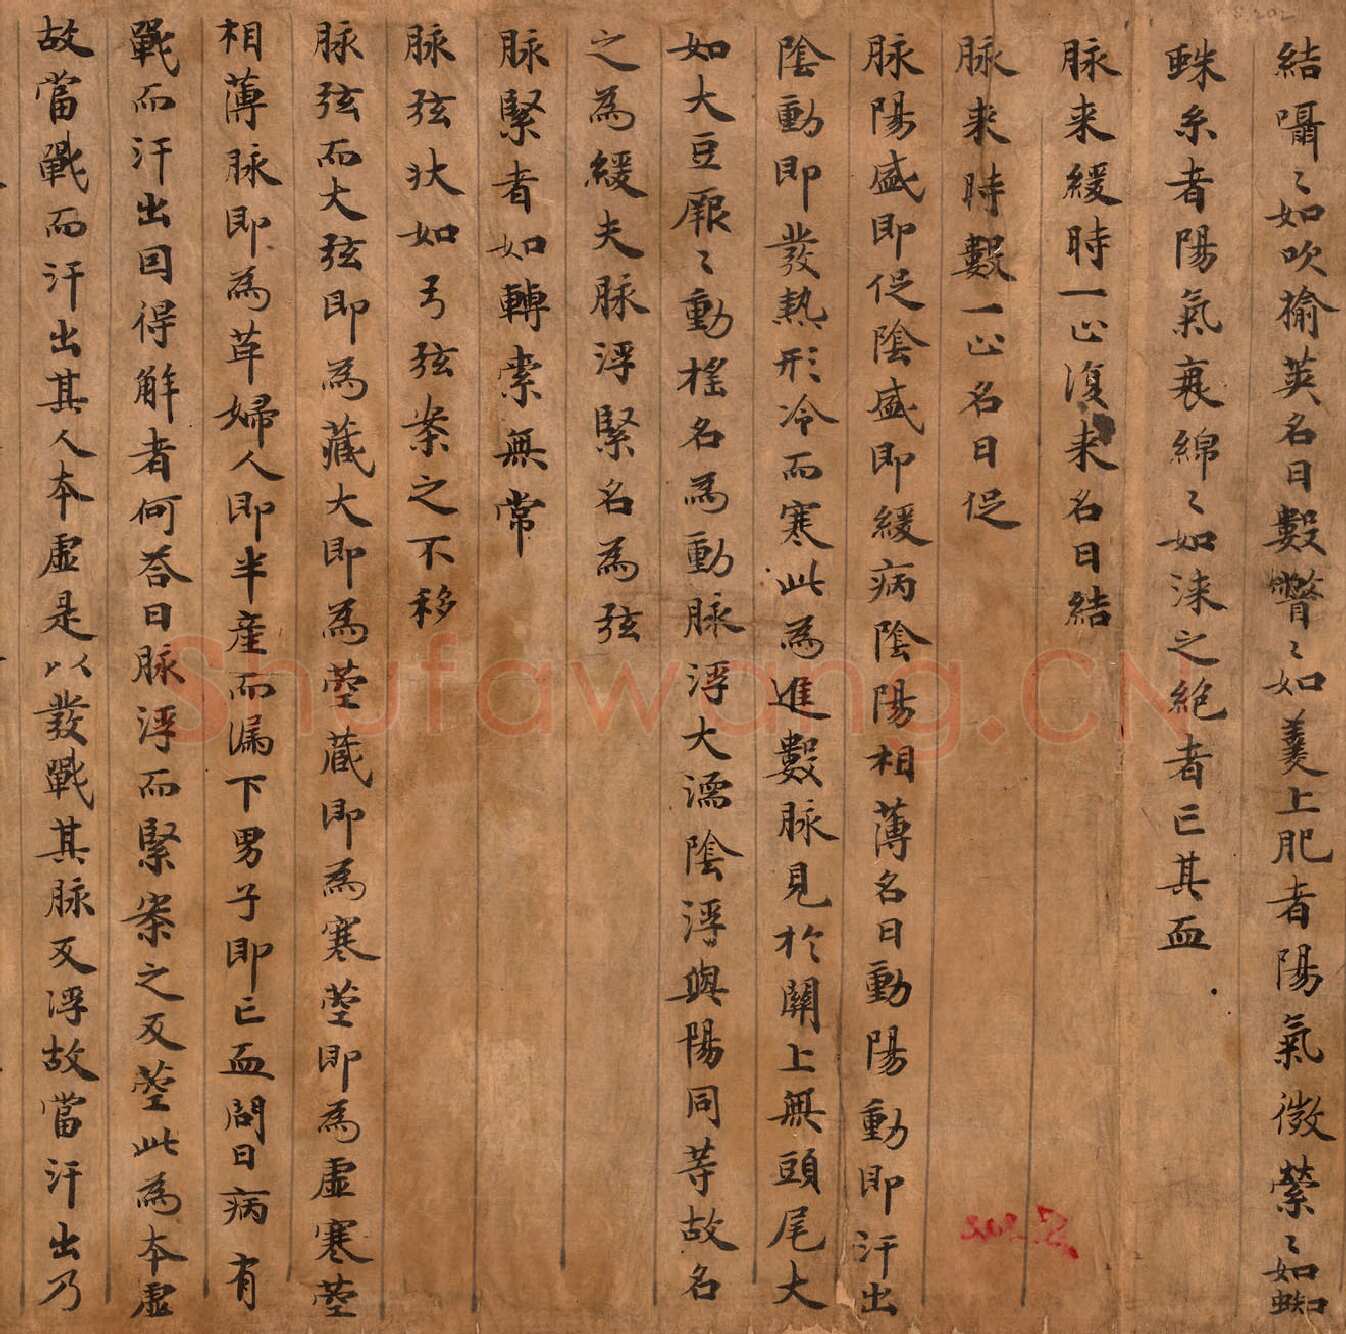 結囁〻如吹榆莢名曰數瞥〻如羹上肥者陽氣微縈〻如蜘
蛛糸者陽氣衰綿〻如漆之絕者亡其血
脉来緩時一止復来名曰結
脉来時數一止名曰促
脉陽盛即促陰盛即緩病陰陽相薄名曰動陽動即汗出
陰動即發熱形冷而寒此為進數脉見於關上無頭尾大
如大豆厥〻動搖名為動脉浮大濡陰浮與陽同等故名
之為緩夫脉浮緊名為弦
脉緊者如轉索無常
脉弦狀如弓弦案之不移
脉弦而大弦即為藏大即為芤藏即為寒芤即為虛寒芤
相薄脉即為革婦人即半產而漏下男子即亡血問曰病有
戰而汗出因得解者何荅曰脉浮而緊案之反芤此為本虛
故當戰而汗出其人本虛是以發戰其脉反浮故當汗出乃
S.202
Shufawang.CN